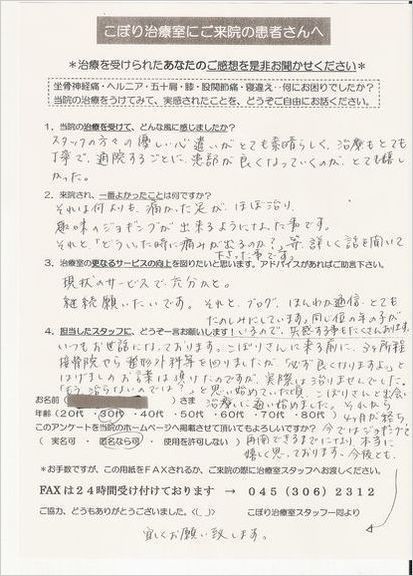 こぼり治療室にご来院の患者さんへ
＊治療を受けられたあなたのご感想を是非お聞かせください＊
坐骨神経痛・ヘルニア・五十肩・膝・股関節痛・寝違え‥何にお困りでしたか？
当院の治療をうけてみて、実感されたことを、どうぞご自由にお話ください。
1. 当院の治療を受けて、どんな風に感じましたか？
スタッフの方々の優しい心遣いがとても素晴らしく、治療もとても
丁寧で、通院するごとに、患部が良くなっていくのが、とても嬉し
かった。
2. 来院され、一番よかったことは何ですか？
それは何よりも、痛かった足が、ほぼ治り、
趣味のジョギングが出来るようになった事です。
それと「どういった時に痛みが出るのか？」等、詳しく話を聞いて
下さった事です。
3. 治療室の更なるサービスの向上を図りたいと思います。アドバイスがあればご助言下さい。
現状のサービスで充分かと。
継続願いたいです。それと、ブログ、ほんわか通信、とても
たのしみにしています。同じ位の年の子が
4. 担当したスタッフに、どうぞ一言お願いします！
いるので、共感する事もたくさんあります。
いつもお世話になっております。こぼりさんに来る前に、3ヶ所程
接骨院やら整形外科等を回りましたが「必ず良くなりますよ」と
はげましのお言葉は頂けたのですが、実際は治りませんでした。
「もう治らないのでは」と思い始めていた頃、こぼりさんと出会い
お名前 さま
治療に通い始めました。それから
年齢（20代 ・30代 ・40代 ・50代 ・60代 ・70代 ・80代）
4ヶ月が経ち、
このアンケートを当院のホームページへ掲載させて頂いてもよろしいですか？
今ではジョギングを
（ 実名可 ・ 匿名なら可 ・ 使用を許可しない ）
再開できるまでになり、本当に
嬉しく思っております。今後とも、
＊お手数ですが、この用紙をＦＡＸされるか、ご来院の際に治療室スタッフへお渡しください。
FAXは２４時間受け付けております → 045（306）2312
ご協力、どうもありがとうございました。<(_ _)> こぼり治療室スタッフ一同より
宜しくお願い致します。